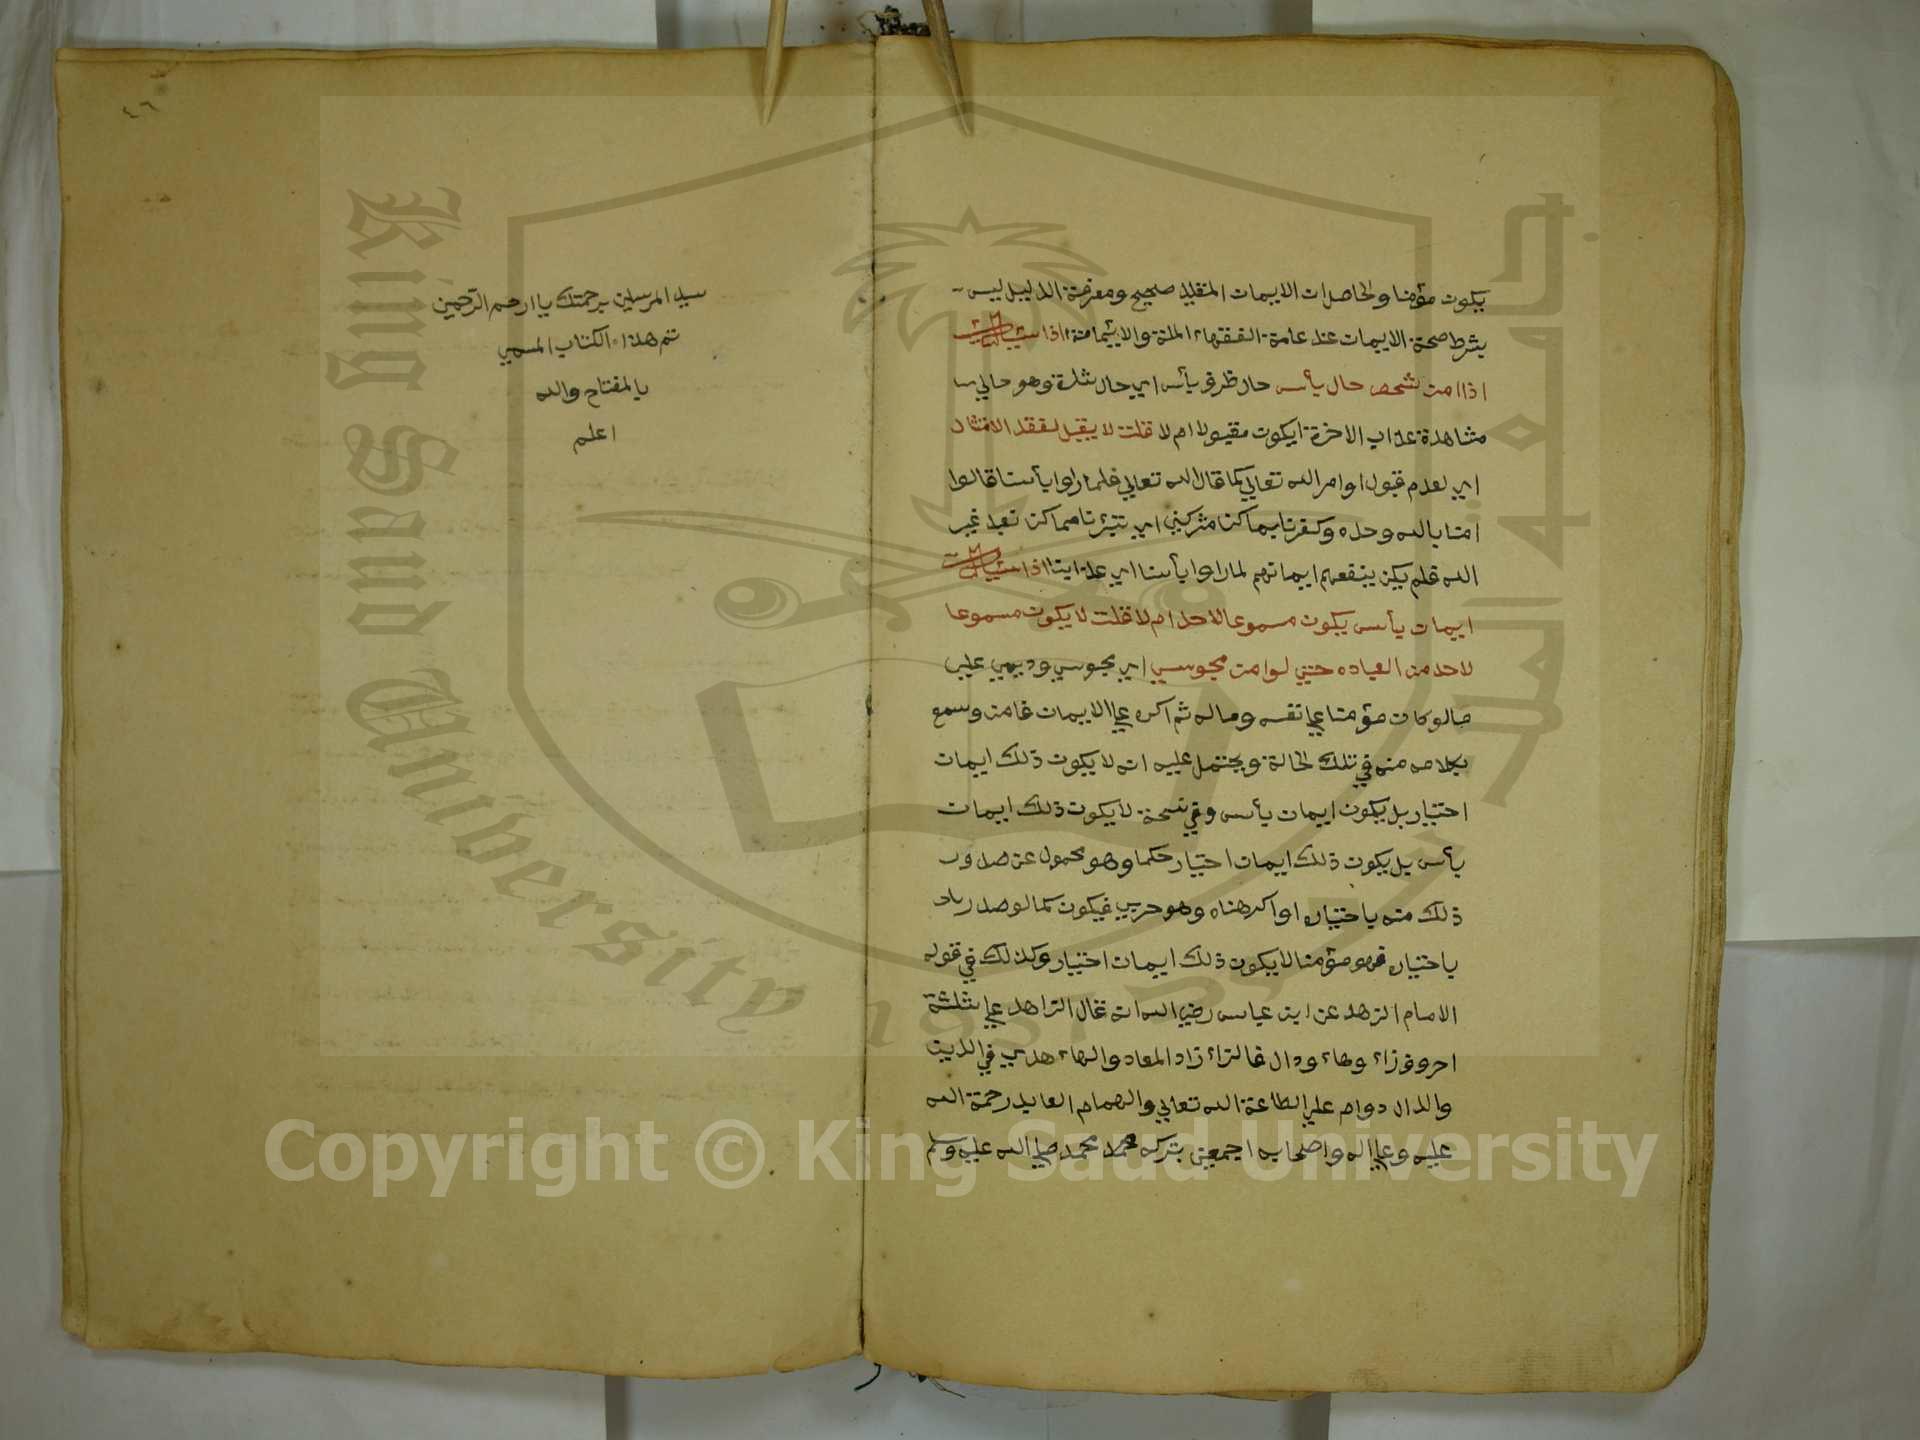 يكون مؤمنا والحاصل ان الايمان المقليد صحيح ومعرفة الدليل ليس
بشرط صحة الايمان عند عامة الفقهاء الملة والائمة اذا سئلت
اذا امن شخص حال يأس حال ظرف يأس اي حال شدة وهو حالي
مشاهدة عذاب الاخرة ايكون مقبولا ام لا قلت لا يقبل لفقد الامتثال
اي لعدم قبول اوامر الله تعالي كما قال الله تعالي فلما راوا يأسنا قالوا
امنا بالله وحده وكفرنا بما كنا مشركين اي تبرئنا مما كنا نعبد غير
الله فلم يكن ينفعهم ايمانهم لما راوا يأسنا اي عذابنا اذا سئلت
ايمان يأس يكون مسموعا لاحد ام لا قلت لا يكون مسموعا
لاحد من العباده حتي لو امن مجوسي اي مجوسي
مالو كان مؤمنا علي نفسه وماله ثم اكره علي الايمان فامن وسمع
كلامه منه في تلك الحالة ويحتمل عليه انه لا يكون ذلك ايمان
اختيار بل يكون ايمان يأس وفي نسخة لا يكون ذلك ايمان
يأس بل يكون ذلك ايمان اختيار حكما وهو محمول عن صدور
ذلك منه باختياره او اكرهناه وهو حربي فيكون كما لو صدر
باختياره فهو مؤمنا لا يكون ذلك ايمان اختيار وكذلك في قوله
الامام الزهد عن ابن عباس رضي الله انه قال الزاهد علي ثلثة
احروف زاء وهاء ودال فالزاء زاد المعاد والهاء هدي في الدين
والدال دوام علي الطاعة الله تعالي والهمام العابد رحمة الله
عليه وعلي اله واصحابه اجمعين ببركه محمد محمد صلي الله عليه وسلم
٤٦
سيد المرسلين برحمتك يا ارحم الرحمين
تم هذا الكتاب المسمي
بالمفتاح والله
اعلم
King Saud University
1957
جامعة الملك سعود
Copyright © King Saud University